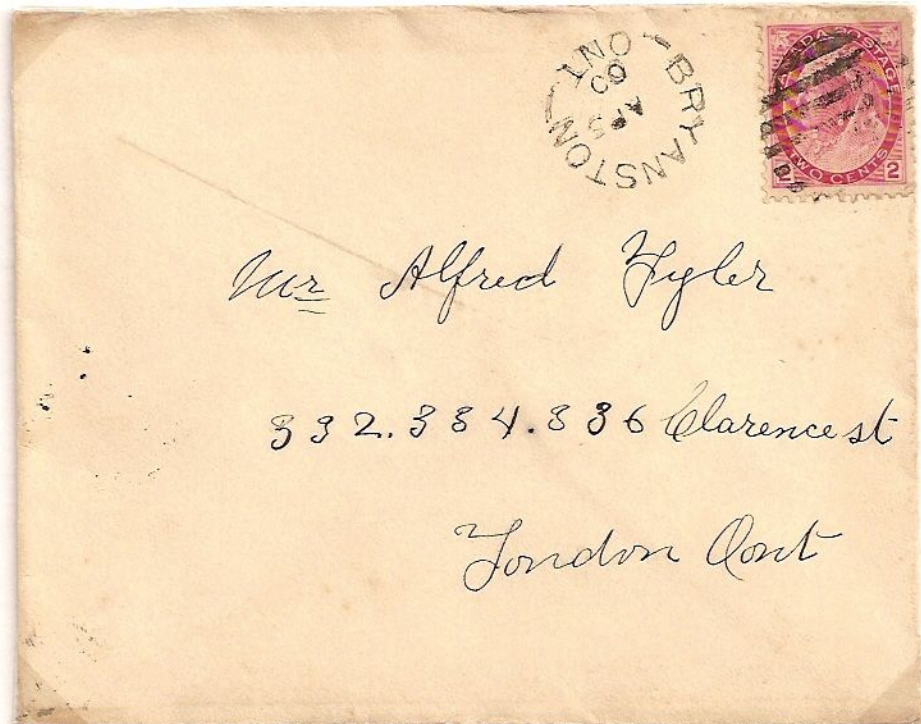 BRYANSTON ONT
AP 5
00
CANADA POSTAGE
TWO CENTS
2
Mr Alfred Tyler
332.334.336 Clarence st
London Ont